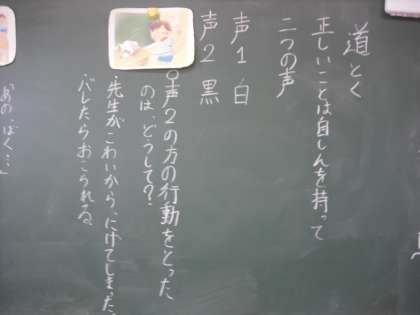 道とく
正しいことは自しんを持って
二つの声
声1 白
声2 黒
○声2の方の行動をとった
のは、どうして?
・先生がこわいから、にげてしまった。
・バレたらおこられる。
「あの、ぼく…」